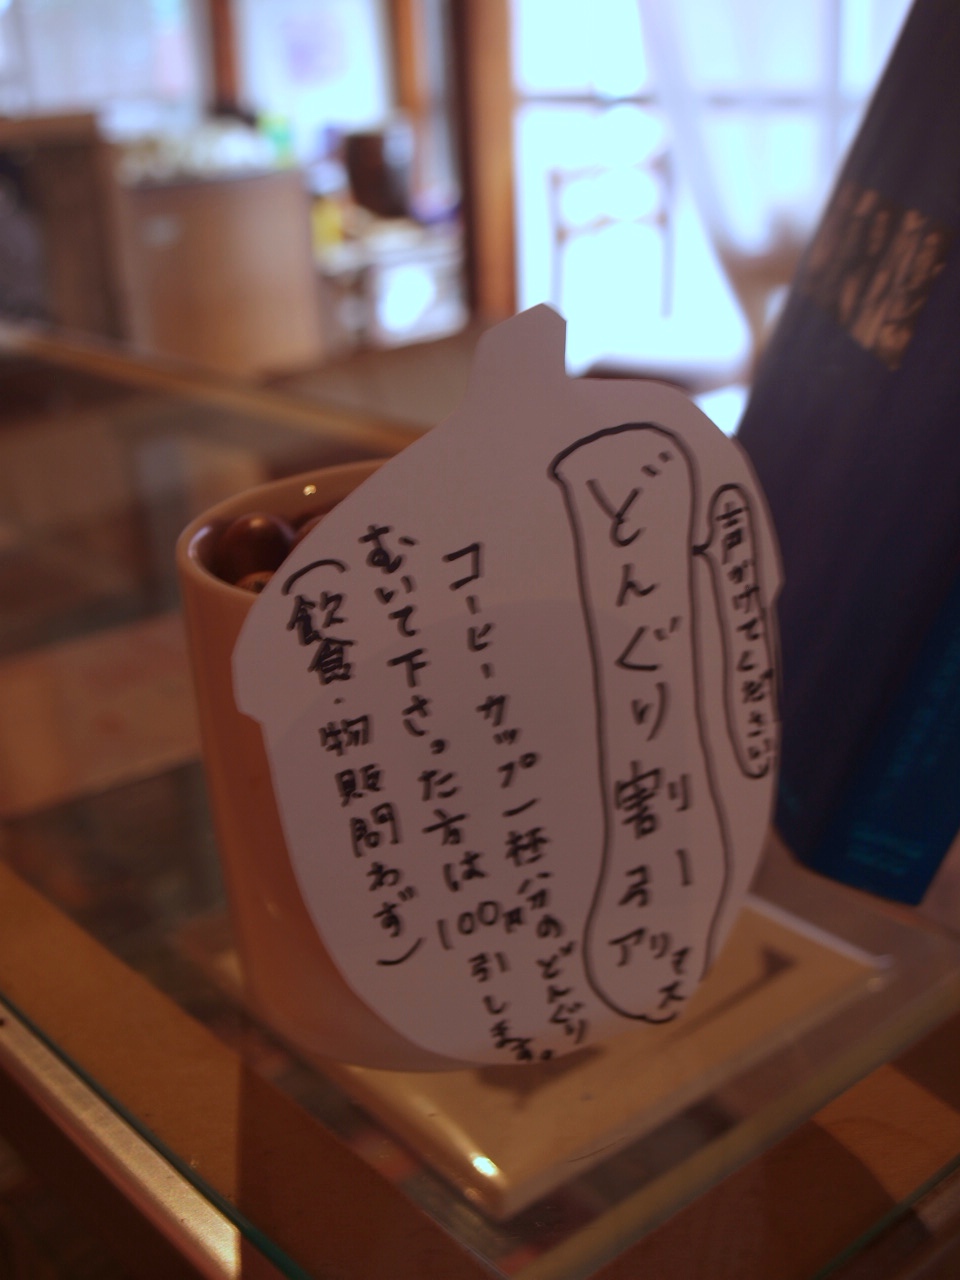 声がけてください
どんぐり割リ引ーアリマス
コーヒーカップ一杯分のどんぐり
むいて下さった方は100円引します。
(飲食・物販問わず)